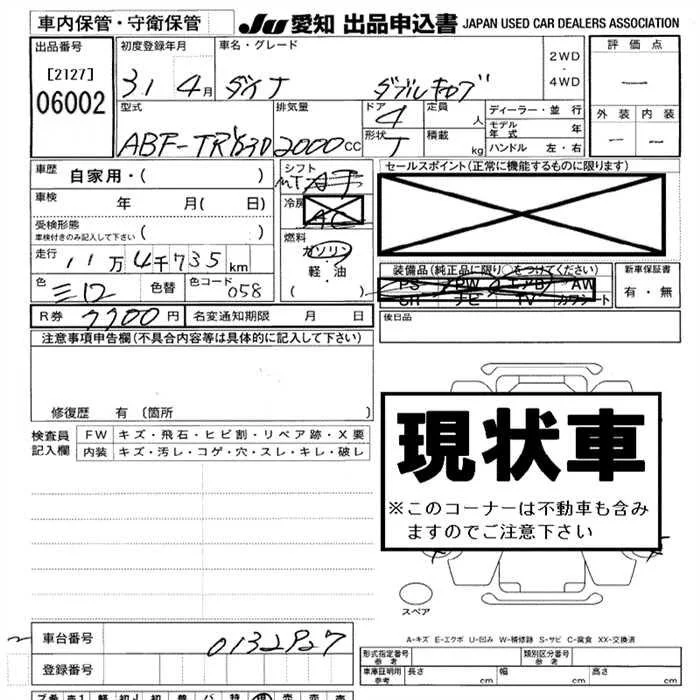 車内保管・守衛保管
JU 愛知 出品申込書 JAPAN USED CAR DEALERS ASSOCIATION
出品番号
[2127]
06002
初度登録年月
31 4月
車名・グレード
ダイナ ダブルキャブ
2WD
・
4WD
評価点
外装 内装
型式
ABF-TRY230
排気量
2000 CC
ドア
4
形状
T
定員
人
積載
kg
ディーラー・並行
モデル年式 年
ハンドル 左・右
車歴
自家用・( )
車検 年 月( 日)
受検形態
車検付きのみ記入して下さい ( )
走行 11万4千735km
色 シロ 色替 色コード 058
シフト
MT
冷房
AC
燃料
ガソリン
軽・油
( )
セールスポイント(正常に機能するものに限ります)
装備品(純正品に限り○をつけてください)
PS PW エアB AW
SR ナビ TV カワシート
新車保証書
有・無
R券 7700円 名変通知期限 月 日
後日品
注意事項申告欄(不具合内容等は具体的に記入して下さい)
修復歴 有 〔箇所 〕
検査員
記入欄
FW キズ・飛石・ヒビ割・リペア跡・X要
内装 キズ・汚レ・コゲ・穴・スレ・キレ・破レ
現状車
※このコーナーは不動車も含み
ますのでご注意下さい
スペア
A-キズ E-エクボ U-凹み W-補修跡 S-サビ C-腐食 XX-交換済
車台番号 0132927
登録番号
形式指定番号
参考
類別区分番号
参考
車庫証明用
参考
長さ cm 幅 cm 高さ cm